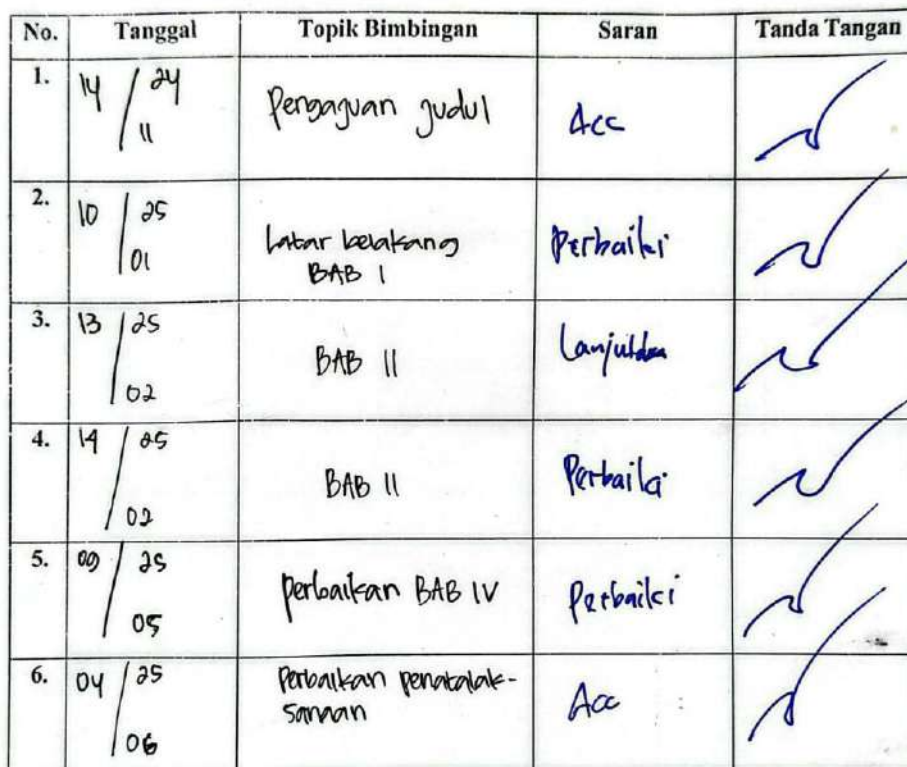 No. Tanggal Topik Bimbingan Saran Tanda Tangan
1. 14/24 11 Pengajuan Judul Acc
2. 10/25 01 Latar belakang Perbaiki
BAB I
3. 13/25 02 BAB II Lanjutkan
4. 14/25 02 BAB II Perbaiki
5. 09/25 05 Perbaikan BAB IV Perbaiki
6. 04/25 06 Perbaikan penatalak- Acc
sanaan